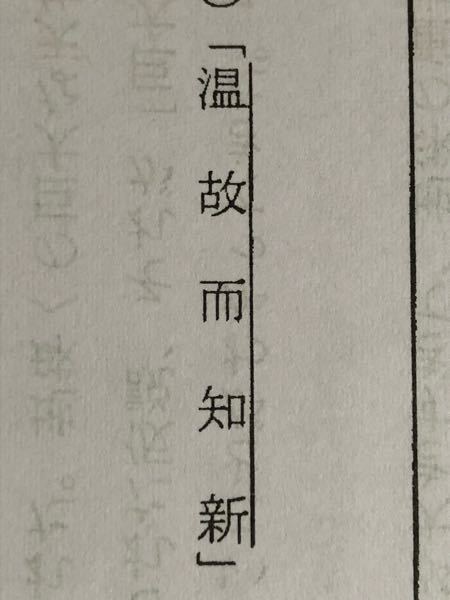 「温故而知新」